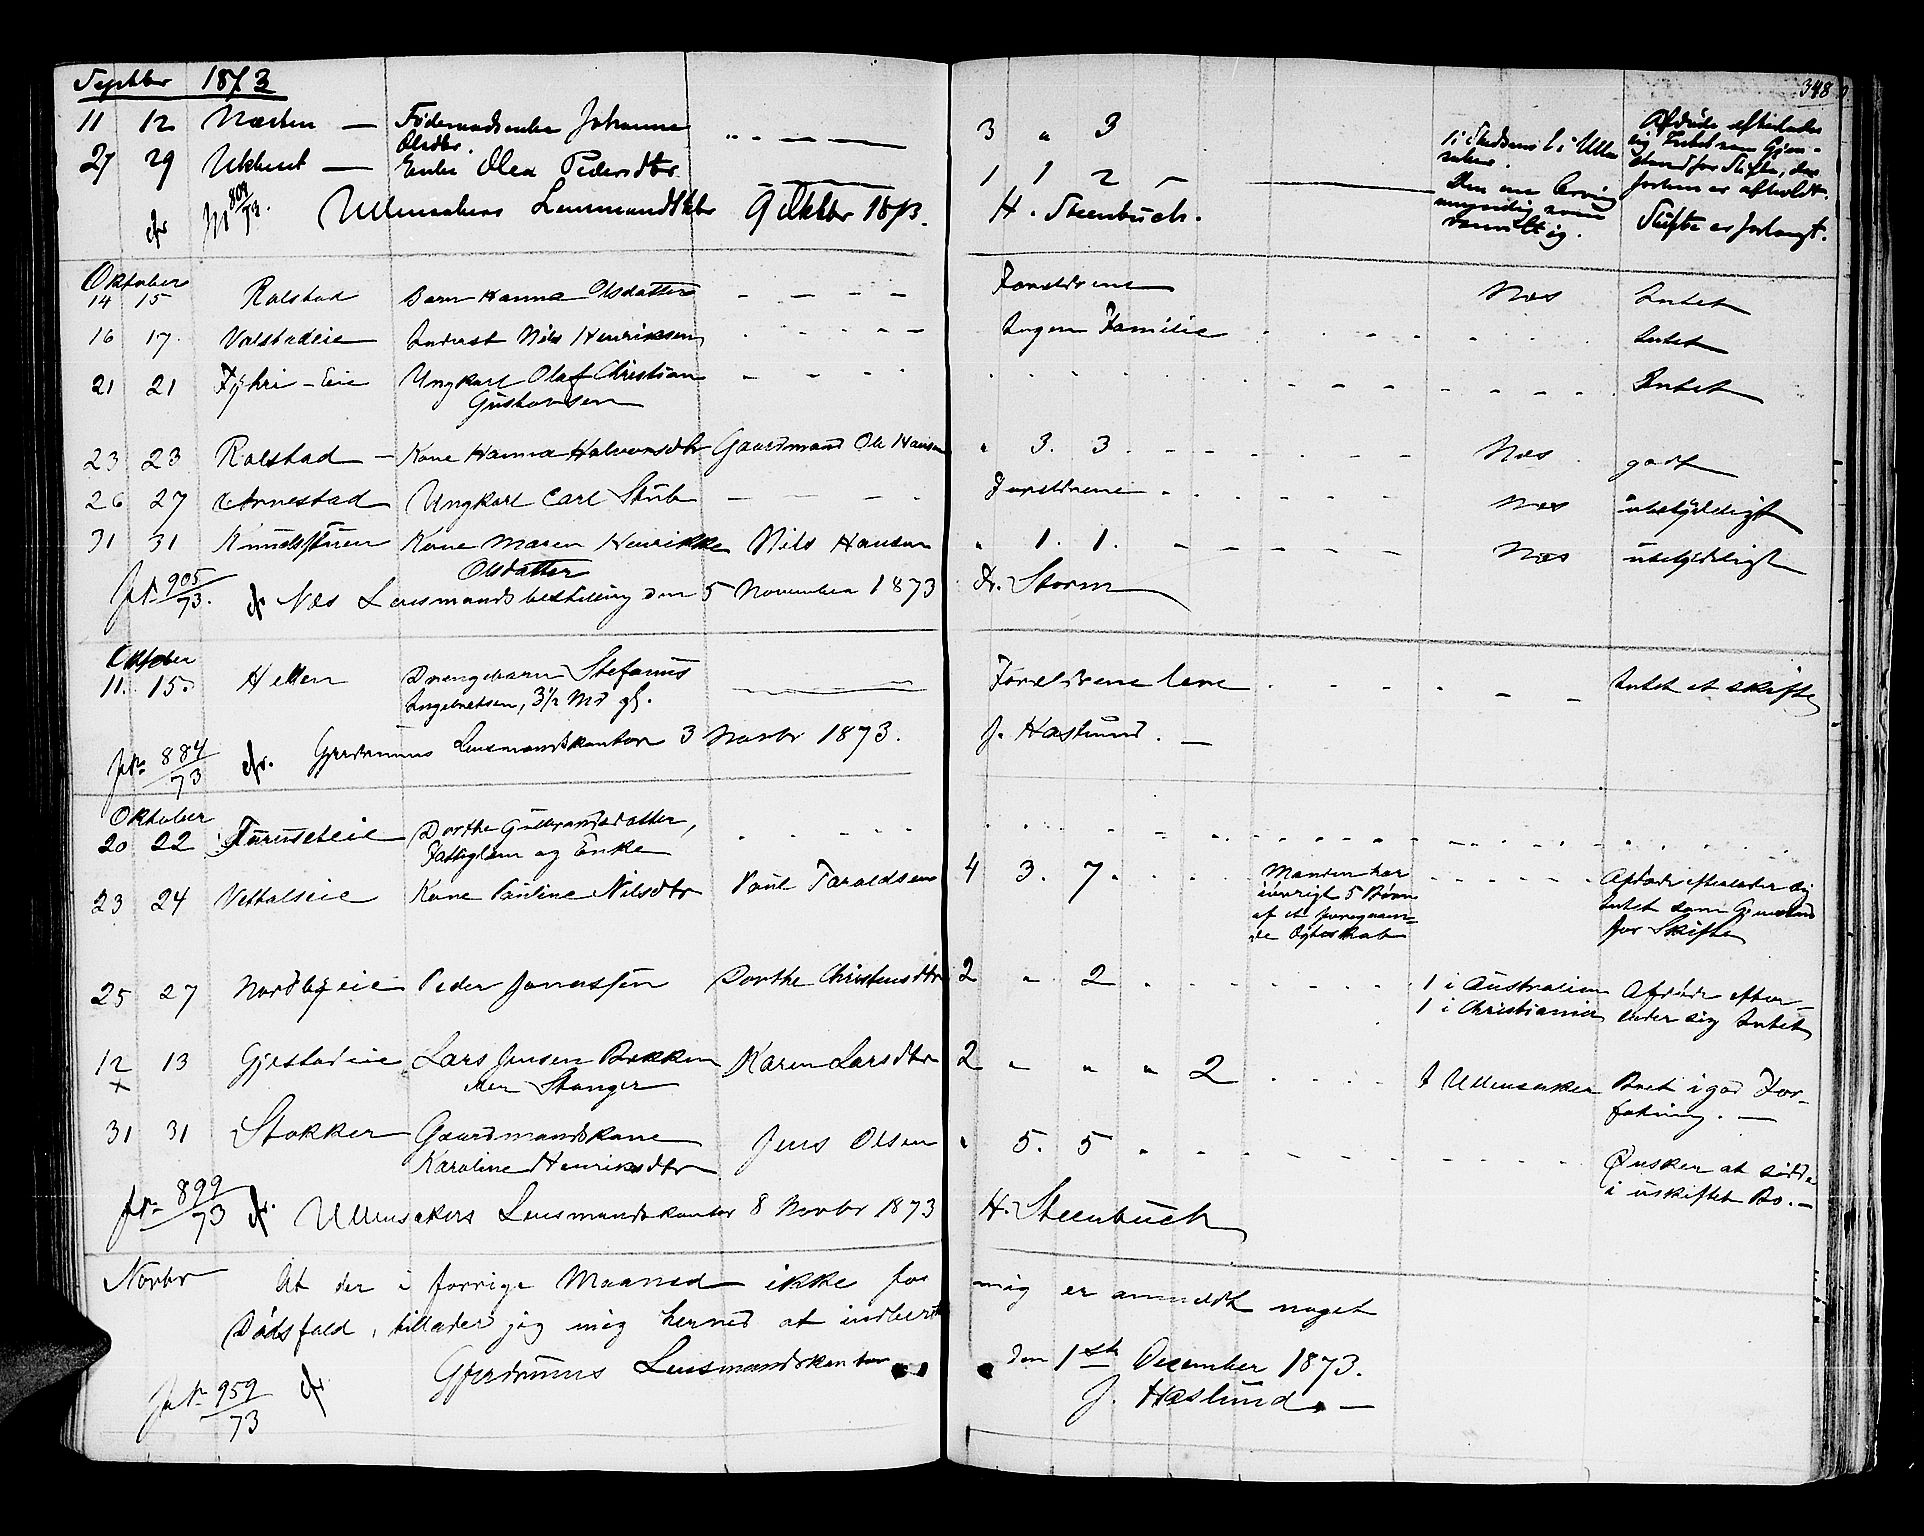 Septbr 1873
348
11 12 Næsten — Födemandsenke Johanne Olsdtr. " - - — 3 " 3
1 i Ullensaker. Afdøde efterlader sig Intet som Gjenstand for Skifte,
27 29 Ukkust — Enke Olea Pedersdtr — 1 1 2 —
Den ene Arving umyndig
Skifte er forlangt.
cfr JN 809/73. Ullensakers Lensmandsktr 9 Oktbr 1873. H. Steenbuch.
Oktober
14 15 Ralstad Barn Hanna Olsdatter - - - - Forældrene Næs Intet
16 17. Valstadeie Inderst Nils Henriksen - - - - Ingen Familie - - - - Intet
21 21 Fjhri - Eie Ungkarl Olaf Christian Gustavsen - - - - Intet
23 23 Ralstad — Kone Hanna Halvorsdtr Gaardmand Ole Hansen " 3. 3. - - - - Næs godt
26 27 Arnestad Ungkarl Carl Stub - - - - Forældrene - - - - Næs ubetydeligt
31 31 Knudsstuen Kone Maren Henrikke Olsdatter Nils Hansen " 1. 1. - - - - Næs ubetydeligt
JN 905/73. cfr Næs Lensmandsbestilling den 5 November 1873 Fr. Storm
Oktober
11. 15. Hellen Drengebarn Stefanus Ingebretsen, 3½ Md gl. — Forældrene leve - - - - Intet at skifte
JN 884/73 cfr. Gjerdrums Lensmandskontor 3 Novbr 1873. J. Haslund. —
Oktober
20 22 Furuseteie Dorthe Gulbrandsdatter, Fattiglem og Enke - - - -
23 24 Vethaleie Kone Pauline Nilsdtr Poul Taraldsen 4 3. 7. - - Manden har iøvrigt 5 Børn af et foregaaende Ægteskab - - - Afdøde efterlader sig Intet som Gjenstand for Skifte
25 27 Nordbyeie Peder Jonassen Dorthe Christensdtr 2 " 2 - - - - 1 i Australien 1 i Christiania Afdøde efterlader sig Intet
12 x 13 Gjestadeie Lars Jensen Bekken eller Stanger Karen Larsdtr 2 " " " 2 - - - I Ullensaker Boet i god Forfatning. —
31 31 Stokker Gaardmandskone Karoline Henriksdtr Jens Olsen " 5. 5 - - - - Ønsker at sidde i uskiftet Bo. —
JN 899/73 cfr. Ullensakers Lensmandskontor 8 Novbr 1873 H. Steenbuch
Novbr At der i forrige Maaned ikke for mig er anmeldt noget
Dødsfald, tillader jeg mig herved at indberette
Gjerdrums Lensmandskontor den 1ste December 1873.
JN 959/73 cfr J. Haslund. —